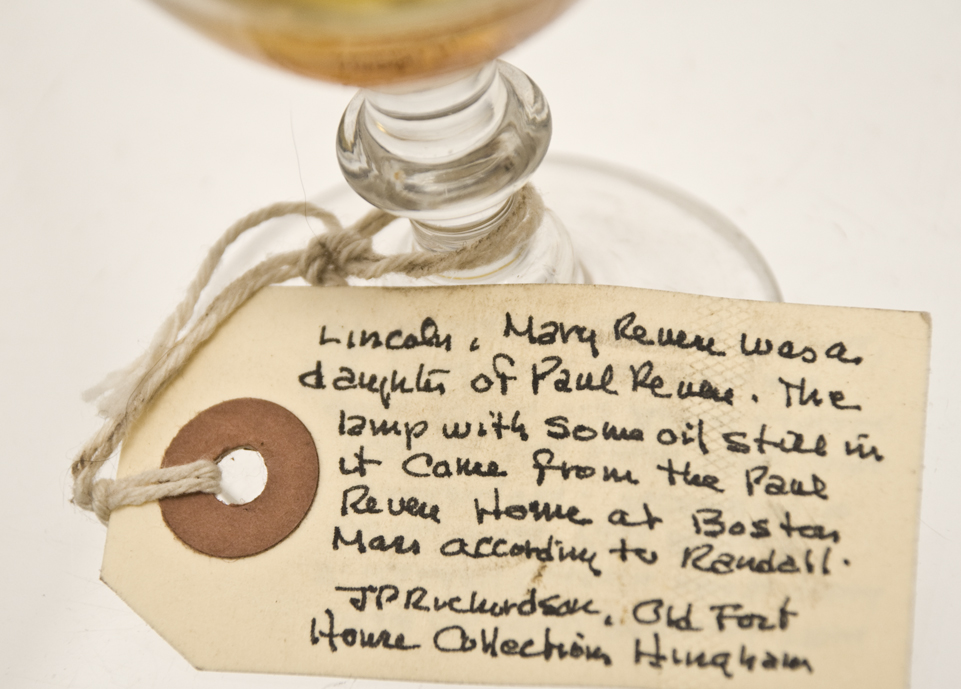 Lincoln. Mary Revere was a
daughter of Paul Revere. The
lamp with some oil still in
it came from the Paul
Revere Home at Boston
Mass according to Randall.
JP Richardson, Old Fort
House Collection Hingham